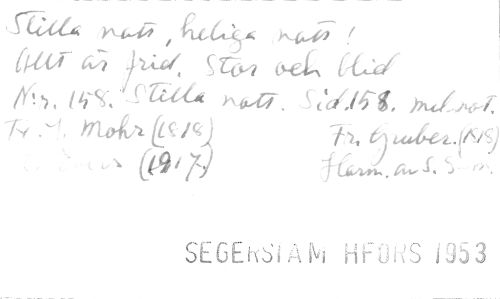 Stilla natt, heliga natt!
Allt är frid. Stor och blid
N:r. 158. Stilla natt. Sid. 158. mel. not.
Tx. J. Mohr (1818) Fr. Gruber. (1818)
(1917.) Harm. av S.
SEGERSTAM HFORS 1953